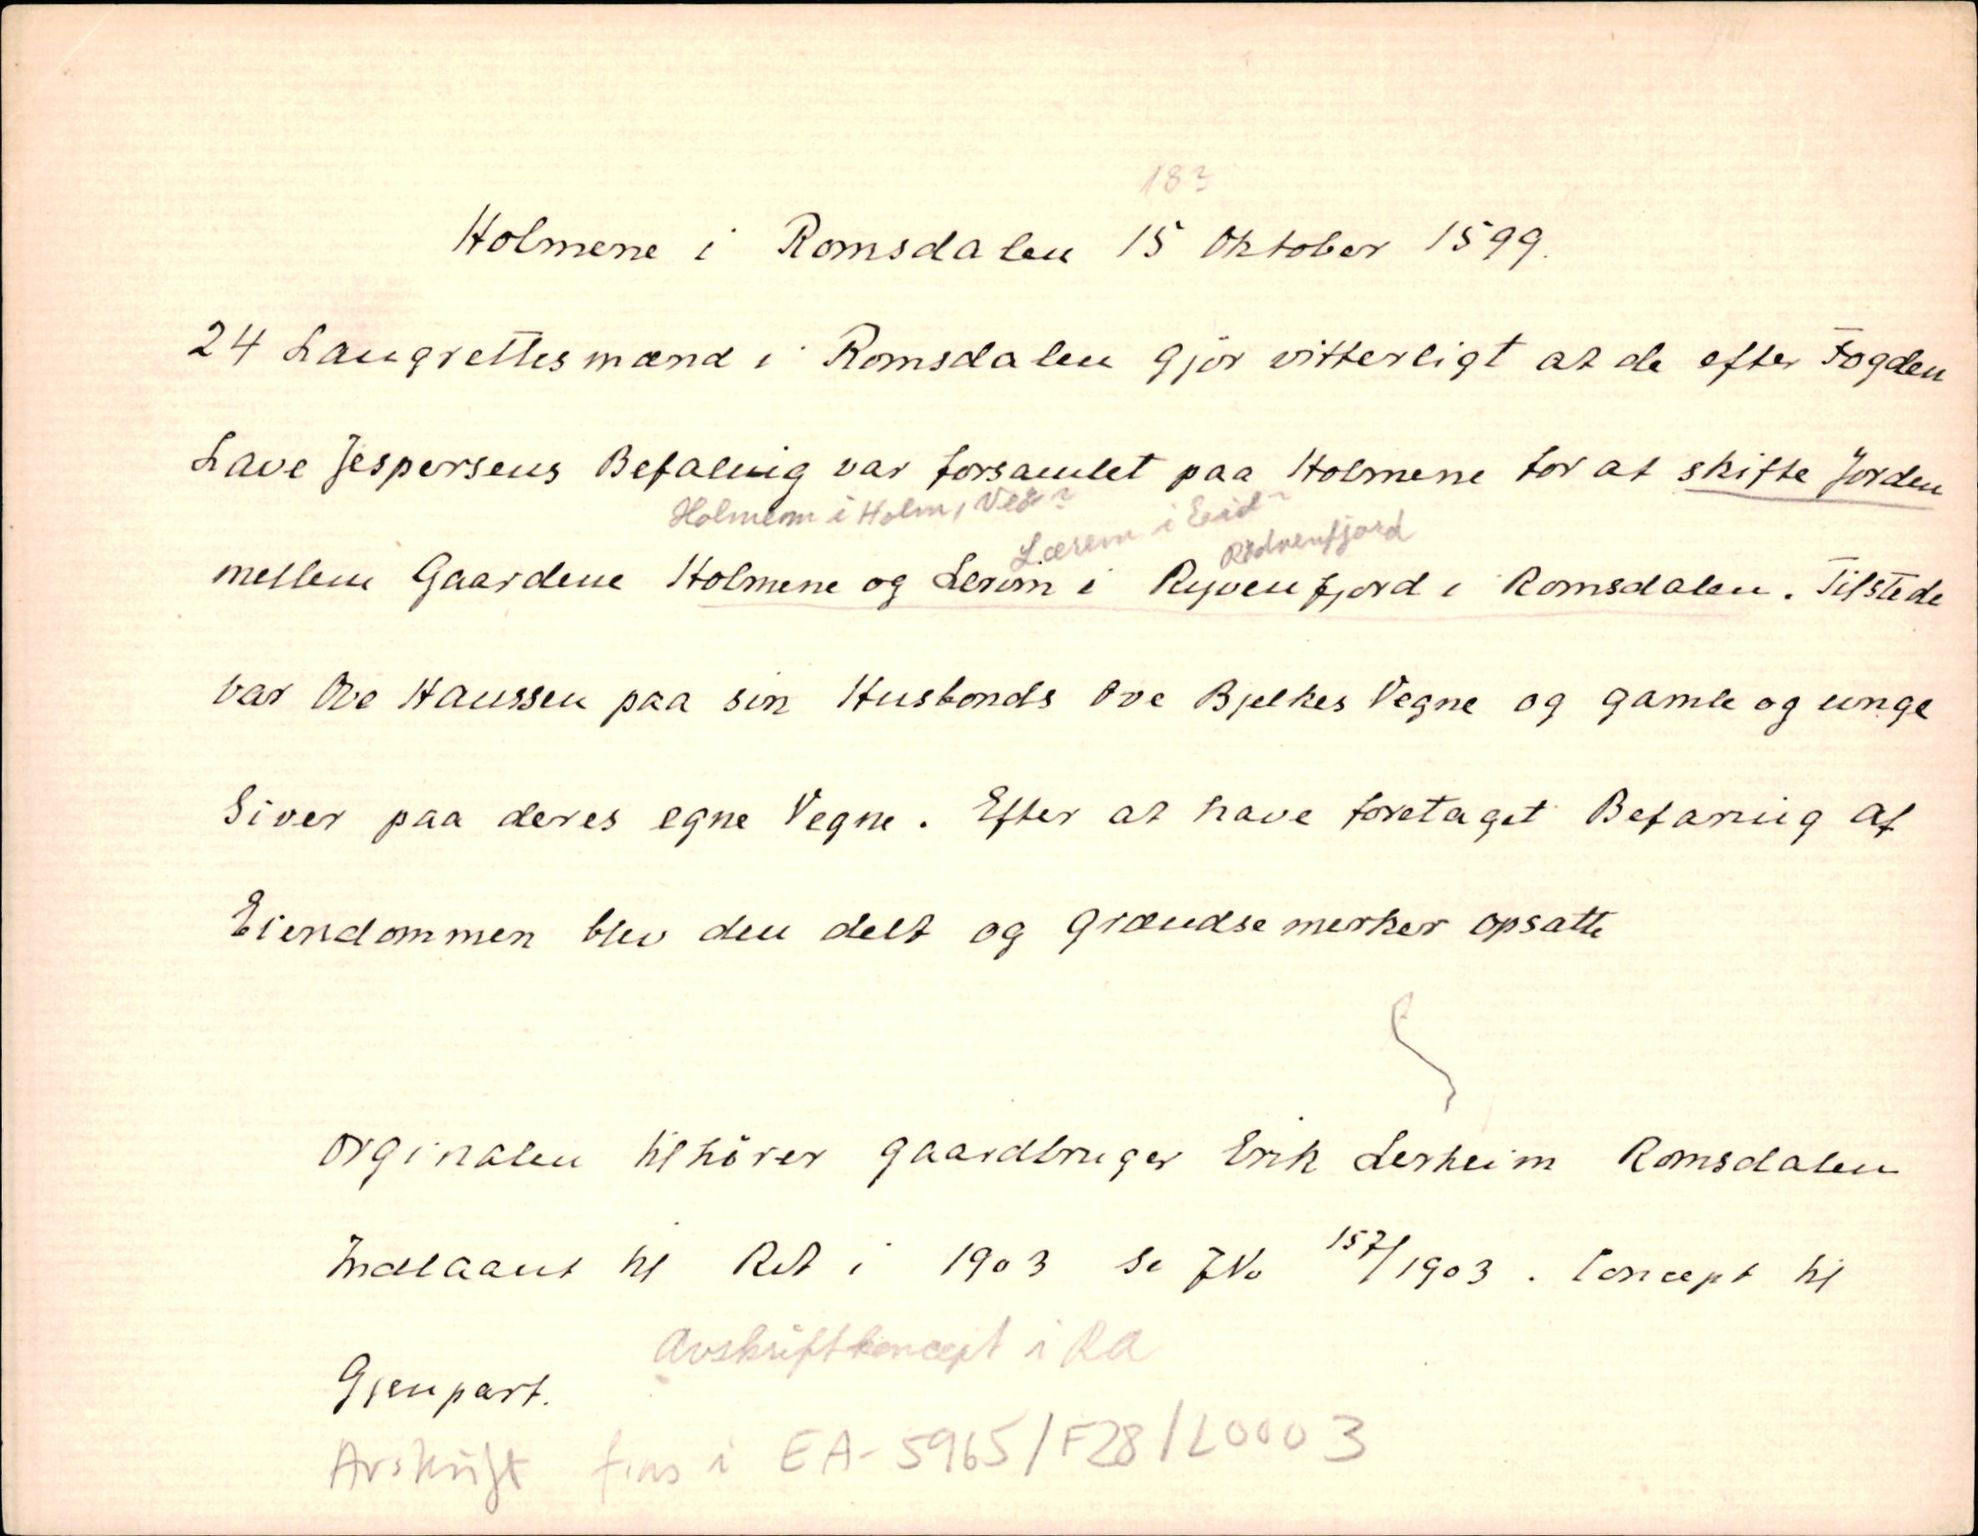 18?
Holmene i Romsdalen 15 Oktober 1599.
24 Laugrettesmænd i Romsdalen gjör vitterligt at de efter Fogden
Lave Jespersens Befaling var forsamlet paa Holmene for at skifte Jorden
Holmem i Holm, Veø? Lærem i Eid? Rødvenfjord
mellem Gaardene Holmene og Lerim i Ryvenfjord i Romsdalen. Tilstede
var Ove Hanssen paa sin Husbonds Ove Bjelkes Vegne og gamle og unge
Siver paa deres egne Vegne. Efter at have foretaget Befaring af
Eiendommen blev den delt og Grændsemerker opsatte
Orginalen tilhörer gaardbruger Erik Lerheim Romsdalen
Indlaant til RA i 1903 se JNo 157/1903. Concept til
Avskriftkoncept i RA
Gjenpart.
Avskrift fins i EA-5965/F28/L0003